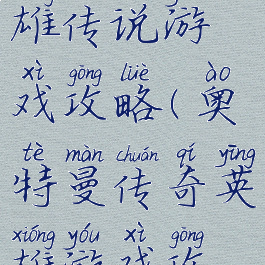 雄传说游
xì gōng lüè ào
戏攻略(奥
tè màn chuán qí yīng
特曼传奇英
xióng yóu xì gōng
雄游戏攻